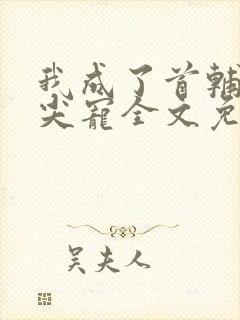 我成了首輔
尖寵全文免
吴夫人